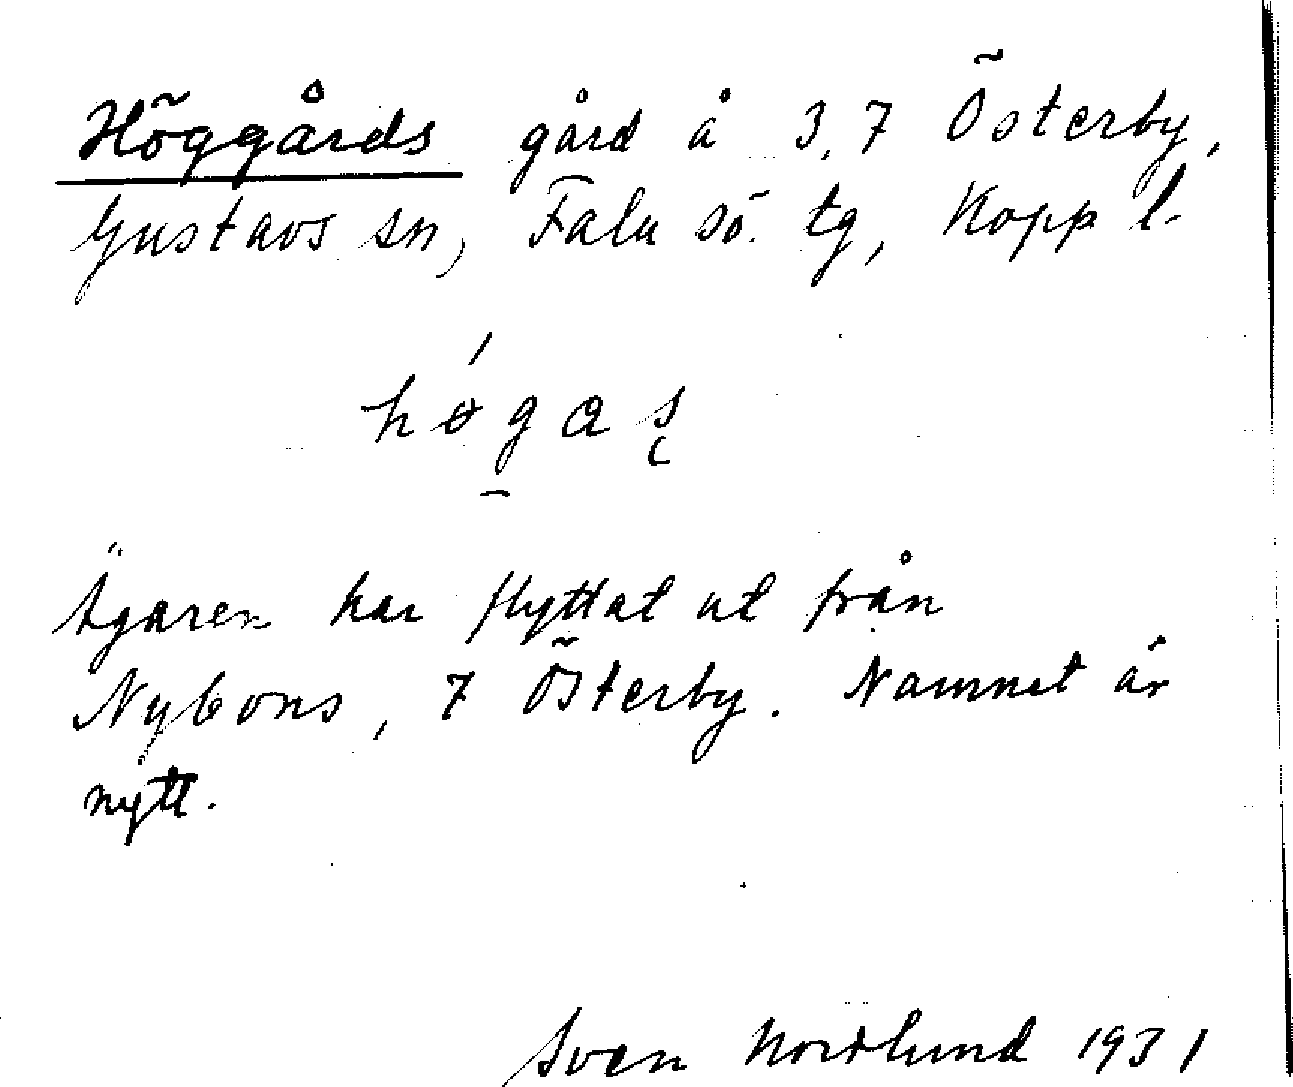 Höggårds gård å 3, 7 Österby,
Gustavs sn, Falu sö. tg, Kopp l.
hǿgas̨
Ägaren har flyttat ut från
Nybons, 7 Österby. Namnet är
nytt.
Sven Nordlund 1931